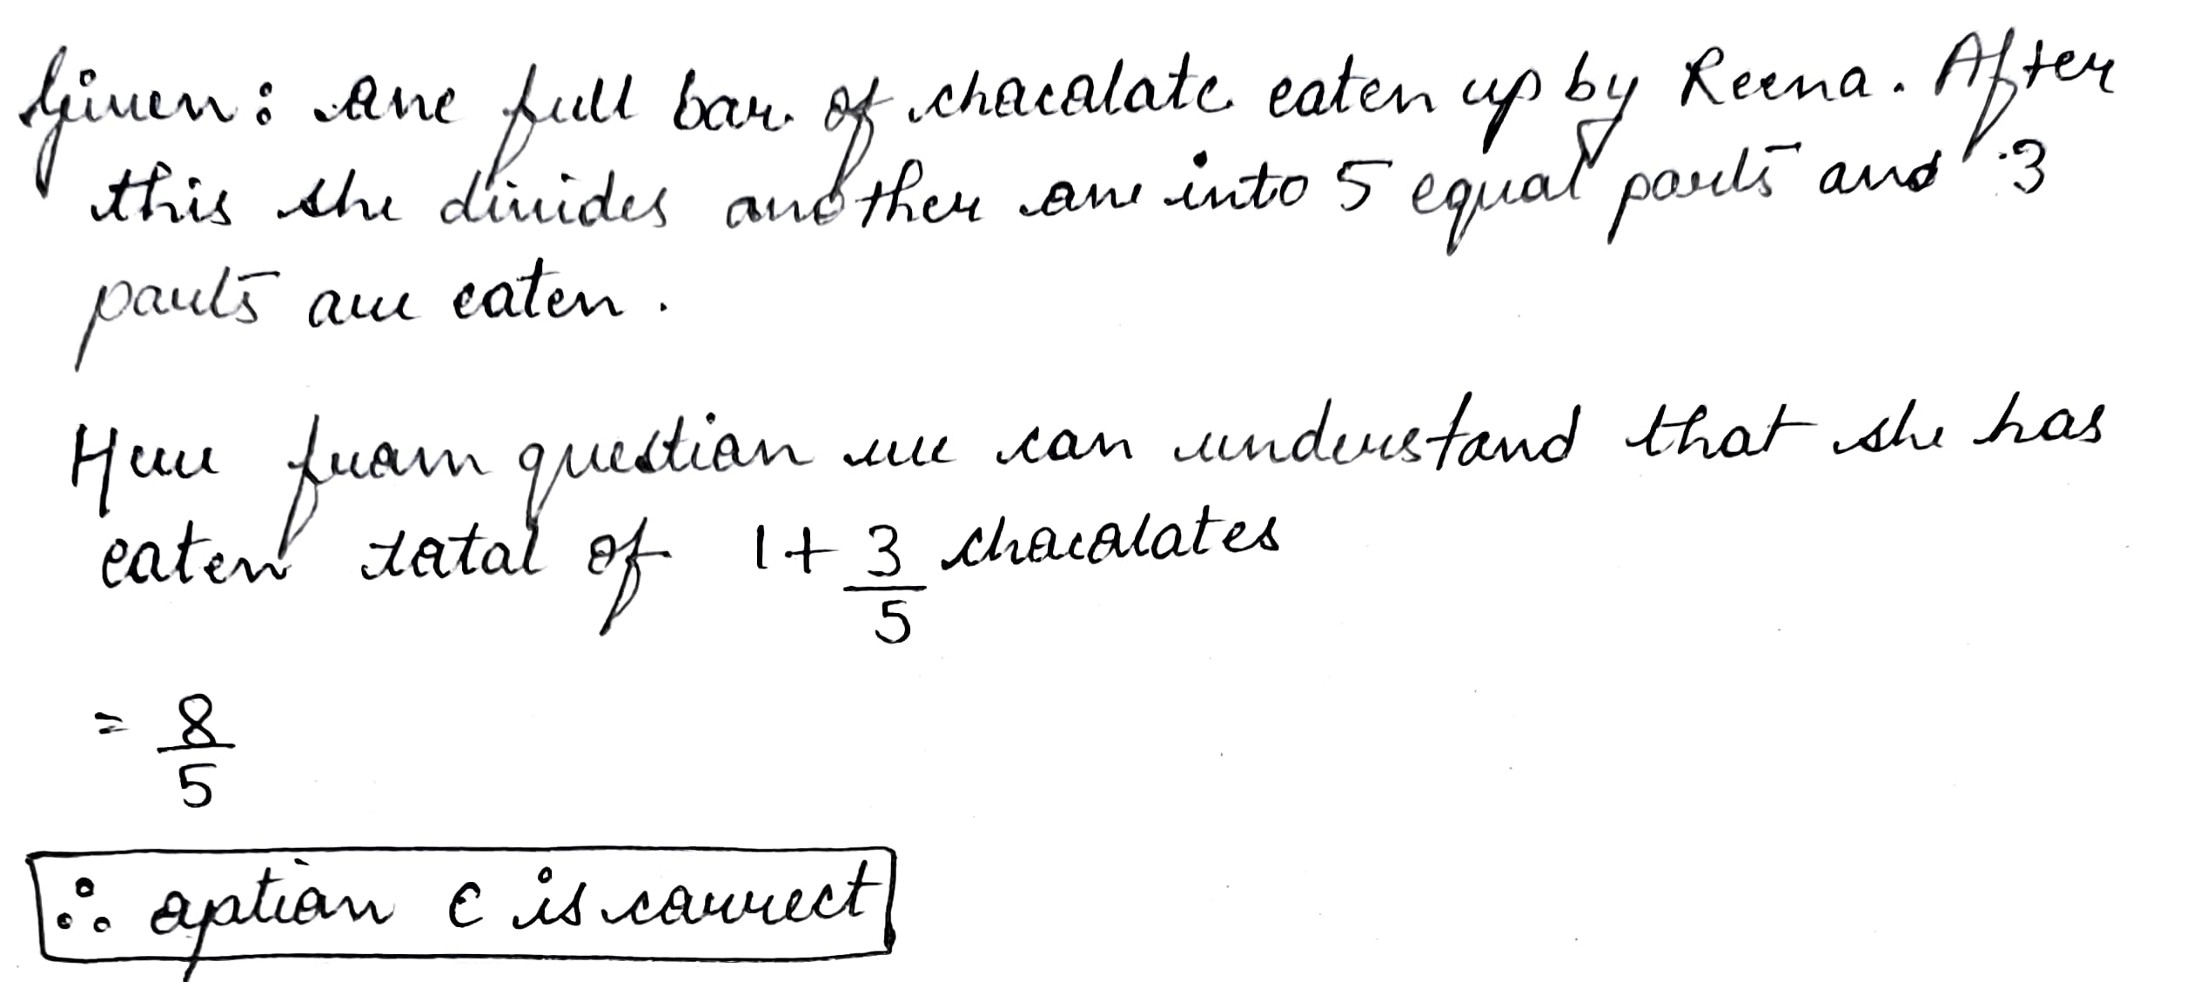 Given: One full bar of chocolate eaten up by Reena. After
this she divides another one into 5 equal parts and 3
parts are eaten.
Here from question we can understand that she has
eaten total of 1 + 3/5 chocolates
= 8/5
∴ option C is correct